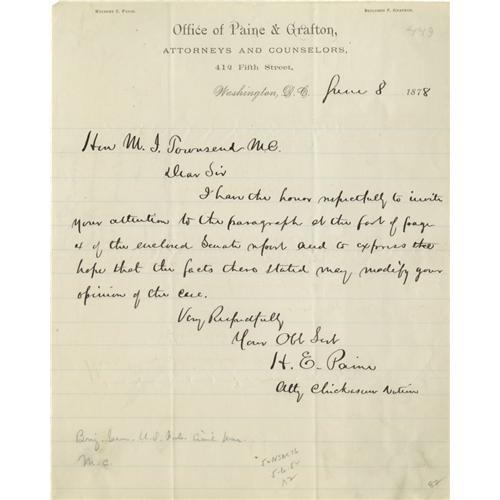 Halbert E. Paine.
Benjamin F. Grafton.
449
Office of Paine & Grafton,
ATTORNEYS AND COUNSELORS,
412 Fifth Street,
Washington, D.C. June 8 1878
Hon M. I. Townsend M.C.
Dear Sir
I have the honor respectfully to invite
your attention to the paragraph at the foot of page
4 of the enclosed Senate report and to express the
hope that the facts there stated may modify your
opinion of the case.
Very Respectfully
Your Obt Servt
H. E. Paine
Atty Chickasaw Nation
Brig. Gen. U.S. Vols. Civil War
M.C.